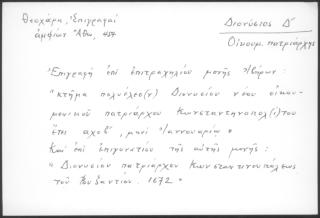 Θεοχάρη, Ἐπιγραφαί
ἀμφίων Ἄθω, 457
Διονύσιος Δ´
Οἰκουμ. πατριάρχης
Ἐπιγραφή ἐπί ἐπιτραχηλίου μονῆς Ἰβήρων:
"κτῆμα πολυόλβο(ν) Διονυσίου νέου οἰκου-
μενικοῦ πατριάρχου Κωνσταντηνοπόλ(ε)ος
ἔτει αχοβ´, μηνί Ἰαννουαρίω"
Καί ἐπί ἐπιγονατίου τῆς αὐτῆς μονῆς:
"Διονυσίου πατριάρχου Κωνσταντινουπόλεως
τοῦ Βυζαντίου. 1672"